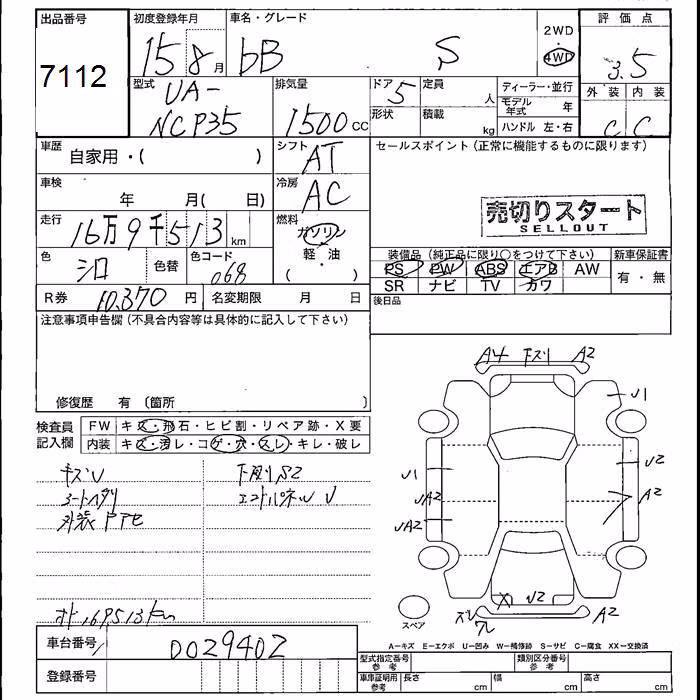 出品番号 初度登録年月 車名・グレード 評価点
7112 15 8月 bB S 2WD 4WD 3.5
型式 排気量 ドア 定員 ディーラー・並行 外装 内装
UA- 5 人 モデル年式 年
NCP35 1500cc 形状 積載 kg ハンドル 左・右 C C
車歴 自家用・( ) シフト AT セールスポイント(正常に機能するものに限ります)
車検 年 月( 日) 冷房 AC
売切りスタート
SELLOUT
走行 16万9千513km 燃料 ガソリン
軽・油
( )
色 シロ 色替 色コード 068
装備品(純正品に限り○をつけて下さい) 新車保証書
PS PW ABS エアB AW 有・無
SR ナビ TV カワ
R券 10,370円 名変期限 月 日 後日品
注意事項申告欄(不具合内容等は具体的に記入して下さい)
修復歴 有(箇所 )
検査員記入欄 FW キズ・飛石・ヒビ割・リペア跡・X要
内装 キズ・汚レ・コゲ・穴・スレ・キレ・破レ
キズU 下廻りS2
シートヘタリ エンドパネルU
外装
169513km
A4 下ズリ A2
U1
U1 U2
UA2 A2
UA2
X U2
A2
スペア
A−キズ E−エクボ U−凹み W−補修跡 S−サビ C−腐食 XX−交換済
車台番号 0029402 型式指定番号 参考 類別区分番号 参考
登録番号 車庫証明用 参考 長さ cm 幅 cm 高さ cm